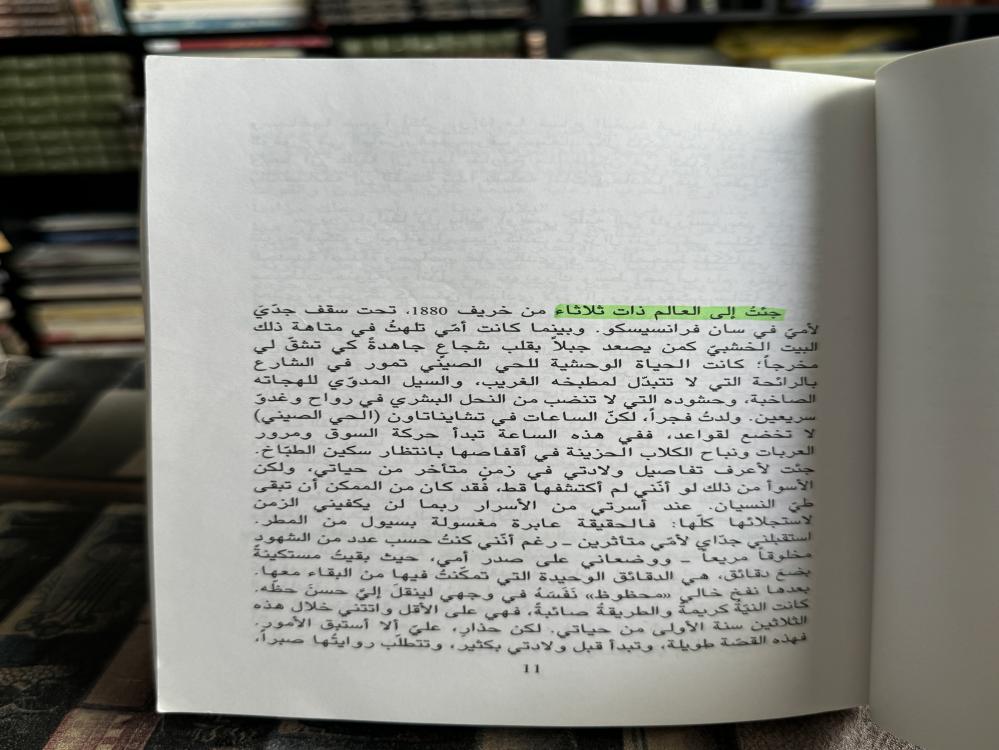 جئتُ إلى العالم ذات ثلاثاء من خريف 1880، تحت سقف جدّيَ
لأميّ في سان فرانسيسكو. وبينما كانت أمّي تلهثُ في متاهة ذلك
البيت الخشبيّ كمن يصعد جبلاً بقلب شجاعٍ جاهدةً كي تشقّ لي
مخرجاً؛ كانت الحياة الوحشية للحي الصينّي تمور في الشارع
بالرائحة التي لا تتبدّل لمطبخه الغريب، والسيل المدوّي للهجاته
الصاخبة، وحشوده التي لا تنضب من النحل البشري في رواح وغدوّ
سريعين. ولدتُ فجراً، لكنّ الساعات في تشايناتاون (الحي الصيني)
لا تخضع لقواعد، ففي هذه الساعة تبدأ حركة السوق ومرور
العربات ونباح الكلاب الحزينة في أقفاصها بانتظار سكين الطبّاخ.
جئت لأعرف تفاصيل ولادتي في زمنٍ متأخر من حياتي، ولكن
الأسوأ من ذلك لو أنّني لم أكتشفها قط، فقد كان من الممكن أن تبقى
طيّ النسيان. عند أسرتي من الأسرار ربما لن يكفيني الزمن
لاستجلائها كلّها: فالحقيقة عابرة مغسولة بسيول من المطر.
استقبلني جدّاي لأمّي متأثرين – رغم أنّني كنتُ حسب عدد من الشهود
مخلوقاً مريعاً – ووضعاني على صدر أمي، حيث بقيتُ مستكينةً
بضع دقائق، هي الدقائق الوحيدة التي تمكّنتُ فيها من البقاء معها.
بعدها نفخ خالي «محظوظ» نَفَسَهُ في وجهي لينقلَ إليّ حسنَ حظّه.
كانت النيّة كريمةً والطريقةُ صائبةً، فهي على الأقل واتتني خلال هذه
الثلاثين سنة الأولى من حياتي. لكن حذارِ، عليّ ألا أستبق الأمور.
فهذه القصّة طويلة، وتبدأ قبل ولادتي بكثير، وتتطلّب روايتُها صبراً،
11